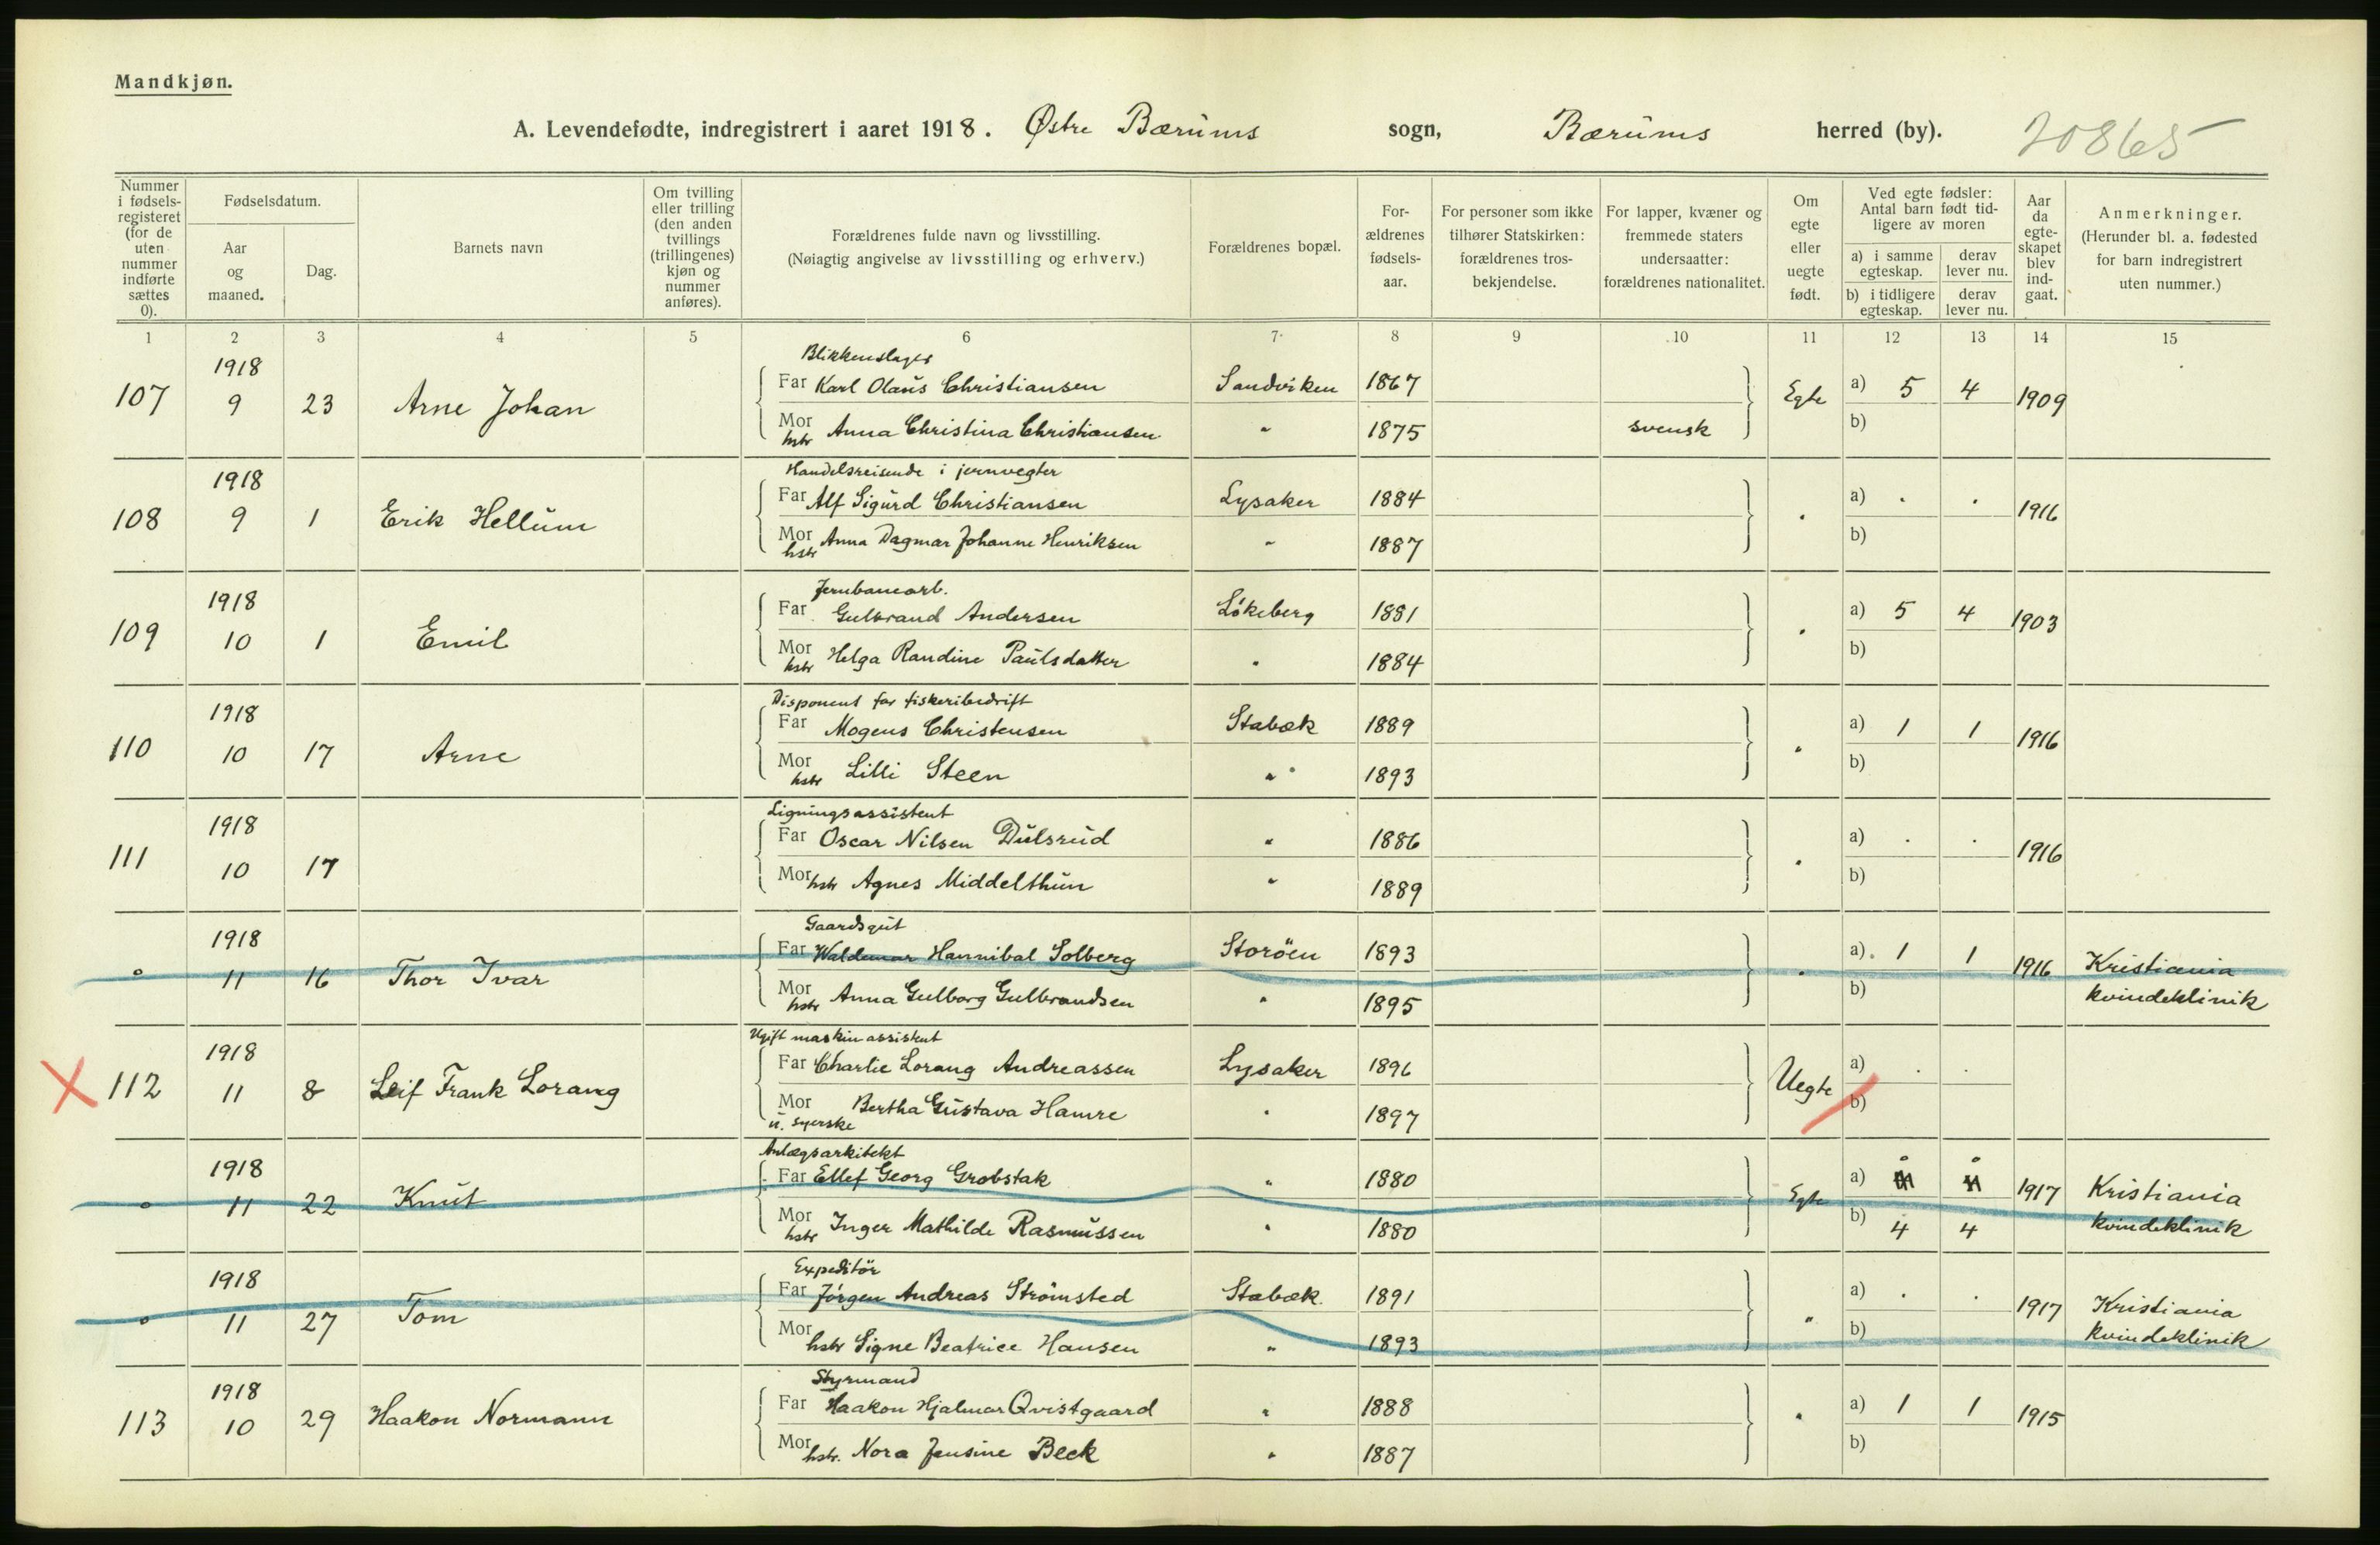 Mandkjøn.
A. Levendefødte, indregistrert i aaret 1918. Østre Bærums sogn, Bærums herred (by). 20865
Nummer i fødsels-registeret (for de uten nummer indførte sættes 0).
Fødselsdatum.
Aar og maaned.
Dag.
Barnets navn
Om tvilling eller trilling (den anden tvillings (trillingenes) kjøn og nummer anføres).
Forældrenes fulde navn og livsstilling.
(Nøiagtig angivelse av livsstilling og erhverv.)
Forældrenes bopæl.
For-ældrenes fødsels-aar.
For personer som ikke tilhører Statskirken: forældrenes tros-bekjendelse.
For lapper, kvæner og fremmede staters undersaatter: forældrenes nationalitet.
Om egte eller uegte født.
Ved egte fødsler: Antal barn født tid-ligere av moren
a) i samme egteskap.
derav lever nu.
b) i tidligere egteskap.
derav lever nu.
Aar da egte-skapet blev ind-gaat.
Anmerkninger.
(Herunder bl. a. fødested for barn indregistrert uten nummer.)
1 2 3 4 5 6 7 8 9 10 11 12 13 14 15
Blikkenslager
1918 Far Karl Olaus Christiansen Sandviken 1867
107 9 23 Arne Johan Egte a) 5 4 1909
Mor hstr Anna Christina Christiansen " 1875 svensk b)
Handelsreisende i jernvegter
1918 Far Alf Sigurd Christiansen Lysaker 1884
108 9 1 Erik Hellum " a) . . 1916
Mor hstr Anna Dagmar Johanne Henriksen " 1887 b)
Jernbanearb.
1918 Far Gulbrand Andersen Løkeberg 1881
109 10 1 Emil " a) 5 4 1903
Mor hstr Helga Randine Paulsdatter " 1884 b)
Disponent for fiskeribedrift
1918 Far Mogens Christensen Stabæk 1889
110 10 17 Arne " a) 1 1 1916
Mor hstr Lilli Steen " 1893 b)
Ligningsassistent
1918 Far Oscar Nilsen Dulsrud " 1886
111 10 17 " a) . . 1916
Mor hstr Agnes Middelthun " 1889 b)
Gaardsgut
1918 Far Waldemar Hannibal Solberg Storöen 1893
0 11 16 Thor Ivar " a) 1 1 1916 Kristiania
Mor hstr Anna Gulborg Gulbrandsen " 1895 b) kvindeklinik
Ugift maskinassistent
1918 Far Charlie Lorang Andreassen Lysaker 1896
X 112 11 8 Leif Frank Lorang Uegte a) . .
Mor Bertha Gustava Hamre " 1897 b)
u. syerske
Anlægsarkitekt
1918 Far Ellef Georg Grobstak " 1880
0 11 22 Knut Egte a) 0 0 1917 Kristiania
Mor hstr Inger Mathilde Rasmussen " 1880 b) 4 4 kvindeklinik
Expeditör
1918 Far Jörgen Andreas Strömsted Stabæk. 1891
0 11 27 Tom " a) . . 1917 Kristiania
Mor hstr Signe Beatrice Hansen " 1893 b) kvindeklinik
Styrmand
1918 Far Haakon Hjalmar Qvistgaard " 1888
113 10 29 Haakon Normann " a) 1 1 1915
Mor hstr. Nora Jensine Beck " 1887 b)